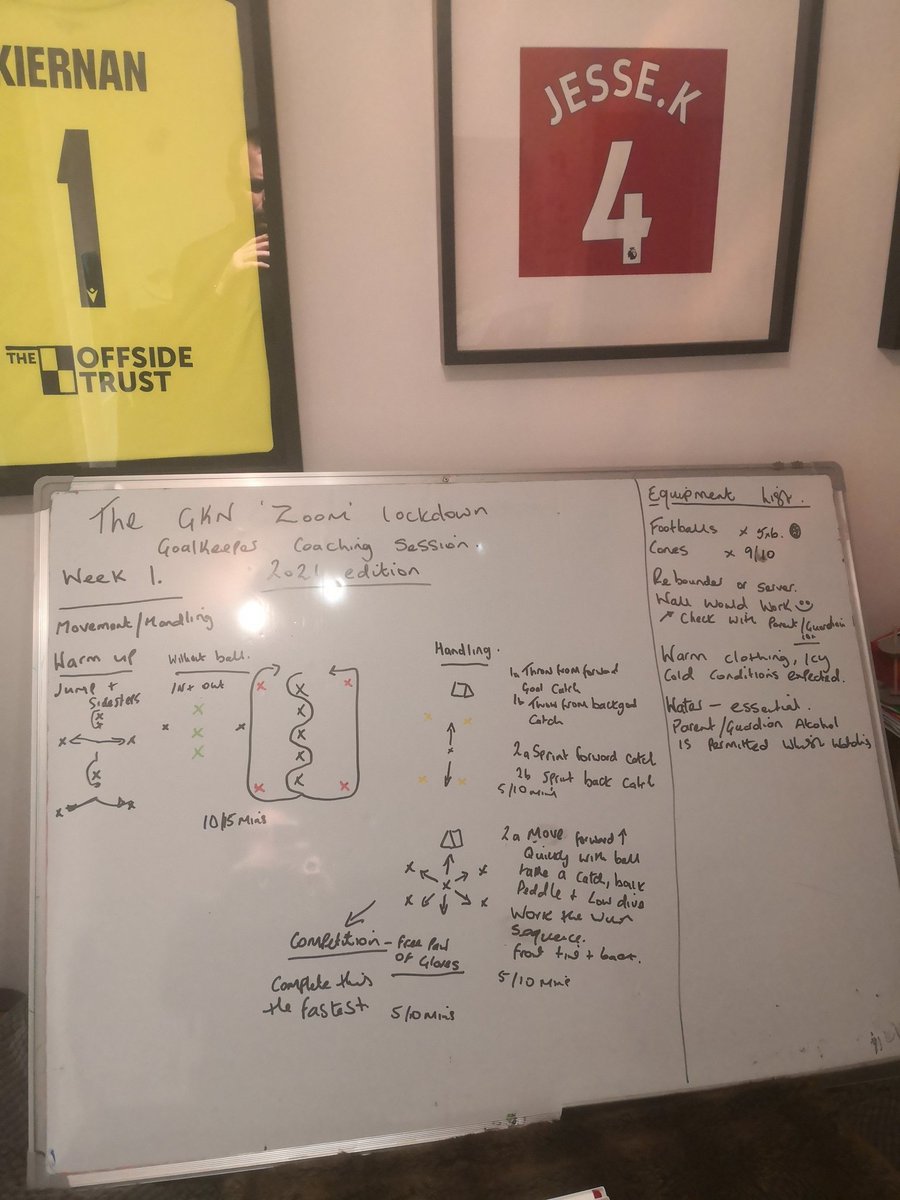 KIERNAN
1
THE OFFSIDE
TRUST
JESSE.K
4
The GKN 'Zoom' lockdown
Goalkeeper Coaching Session.
Week 1. 2021 edition
Movement/Handling
Warm up
Jump +
Without ball.
In + out
10/15 Mins
Handling.
1a Throw from forward
Goal Catch
1b Throw from
Catch
2a Sprint forward catch
2b Sprint back catch
5/10 mins
2a Move forward ↑
Quickly with ball
take a catch, back
Peddle + Low dive
Work the
Sequence.
front + back.
5/10 Mins
Competition - Free Pair
of Gloves
Complete this
the fastest 5/10 Mins
Equipment List.
Footballs x 5/6.
Cones x 9/10
Rebounder or Server.
Wall Would Work
Check with Parent/Guardian
Warm clothing, Icy
Cold conditions expected.
Water - essential.
Parent/Guardian Alcohol
is Permitted Whilst